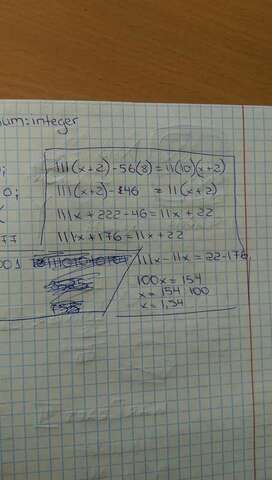 num:integer
111(x+2)-56(8)=11(10)(x+2)
0;
111(x+2)-46 = 11(x+2)
111x+222-46=11x+22
77
111x+176=11x+22
001
111x-11x=22-176,
100x=154
x=154 100
x=1,54